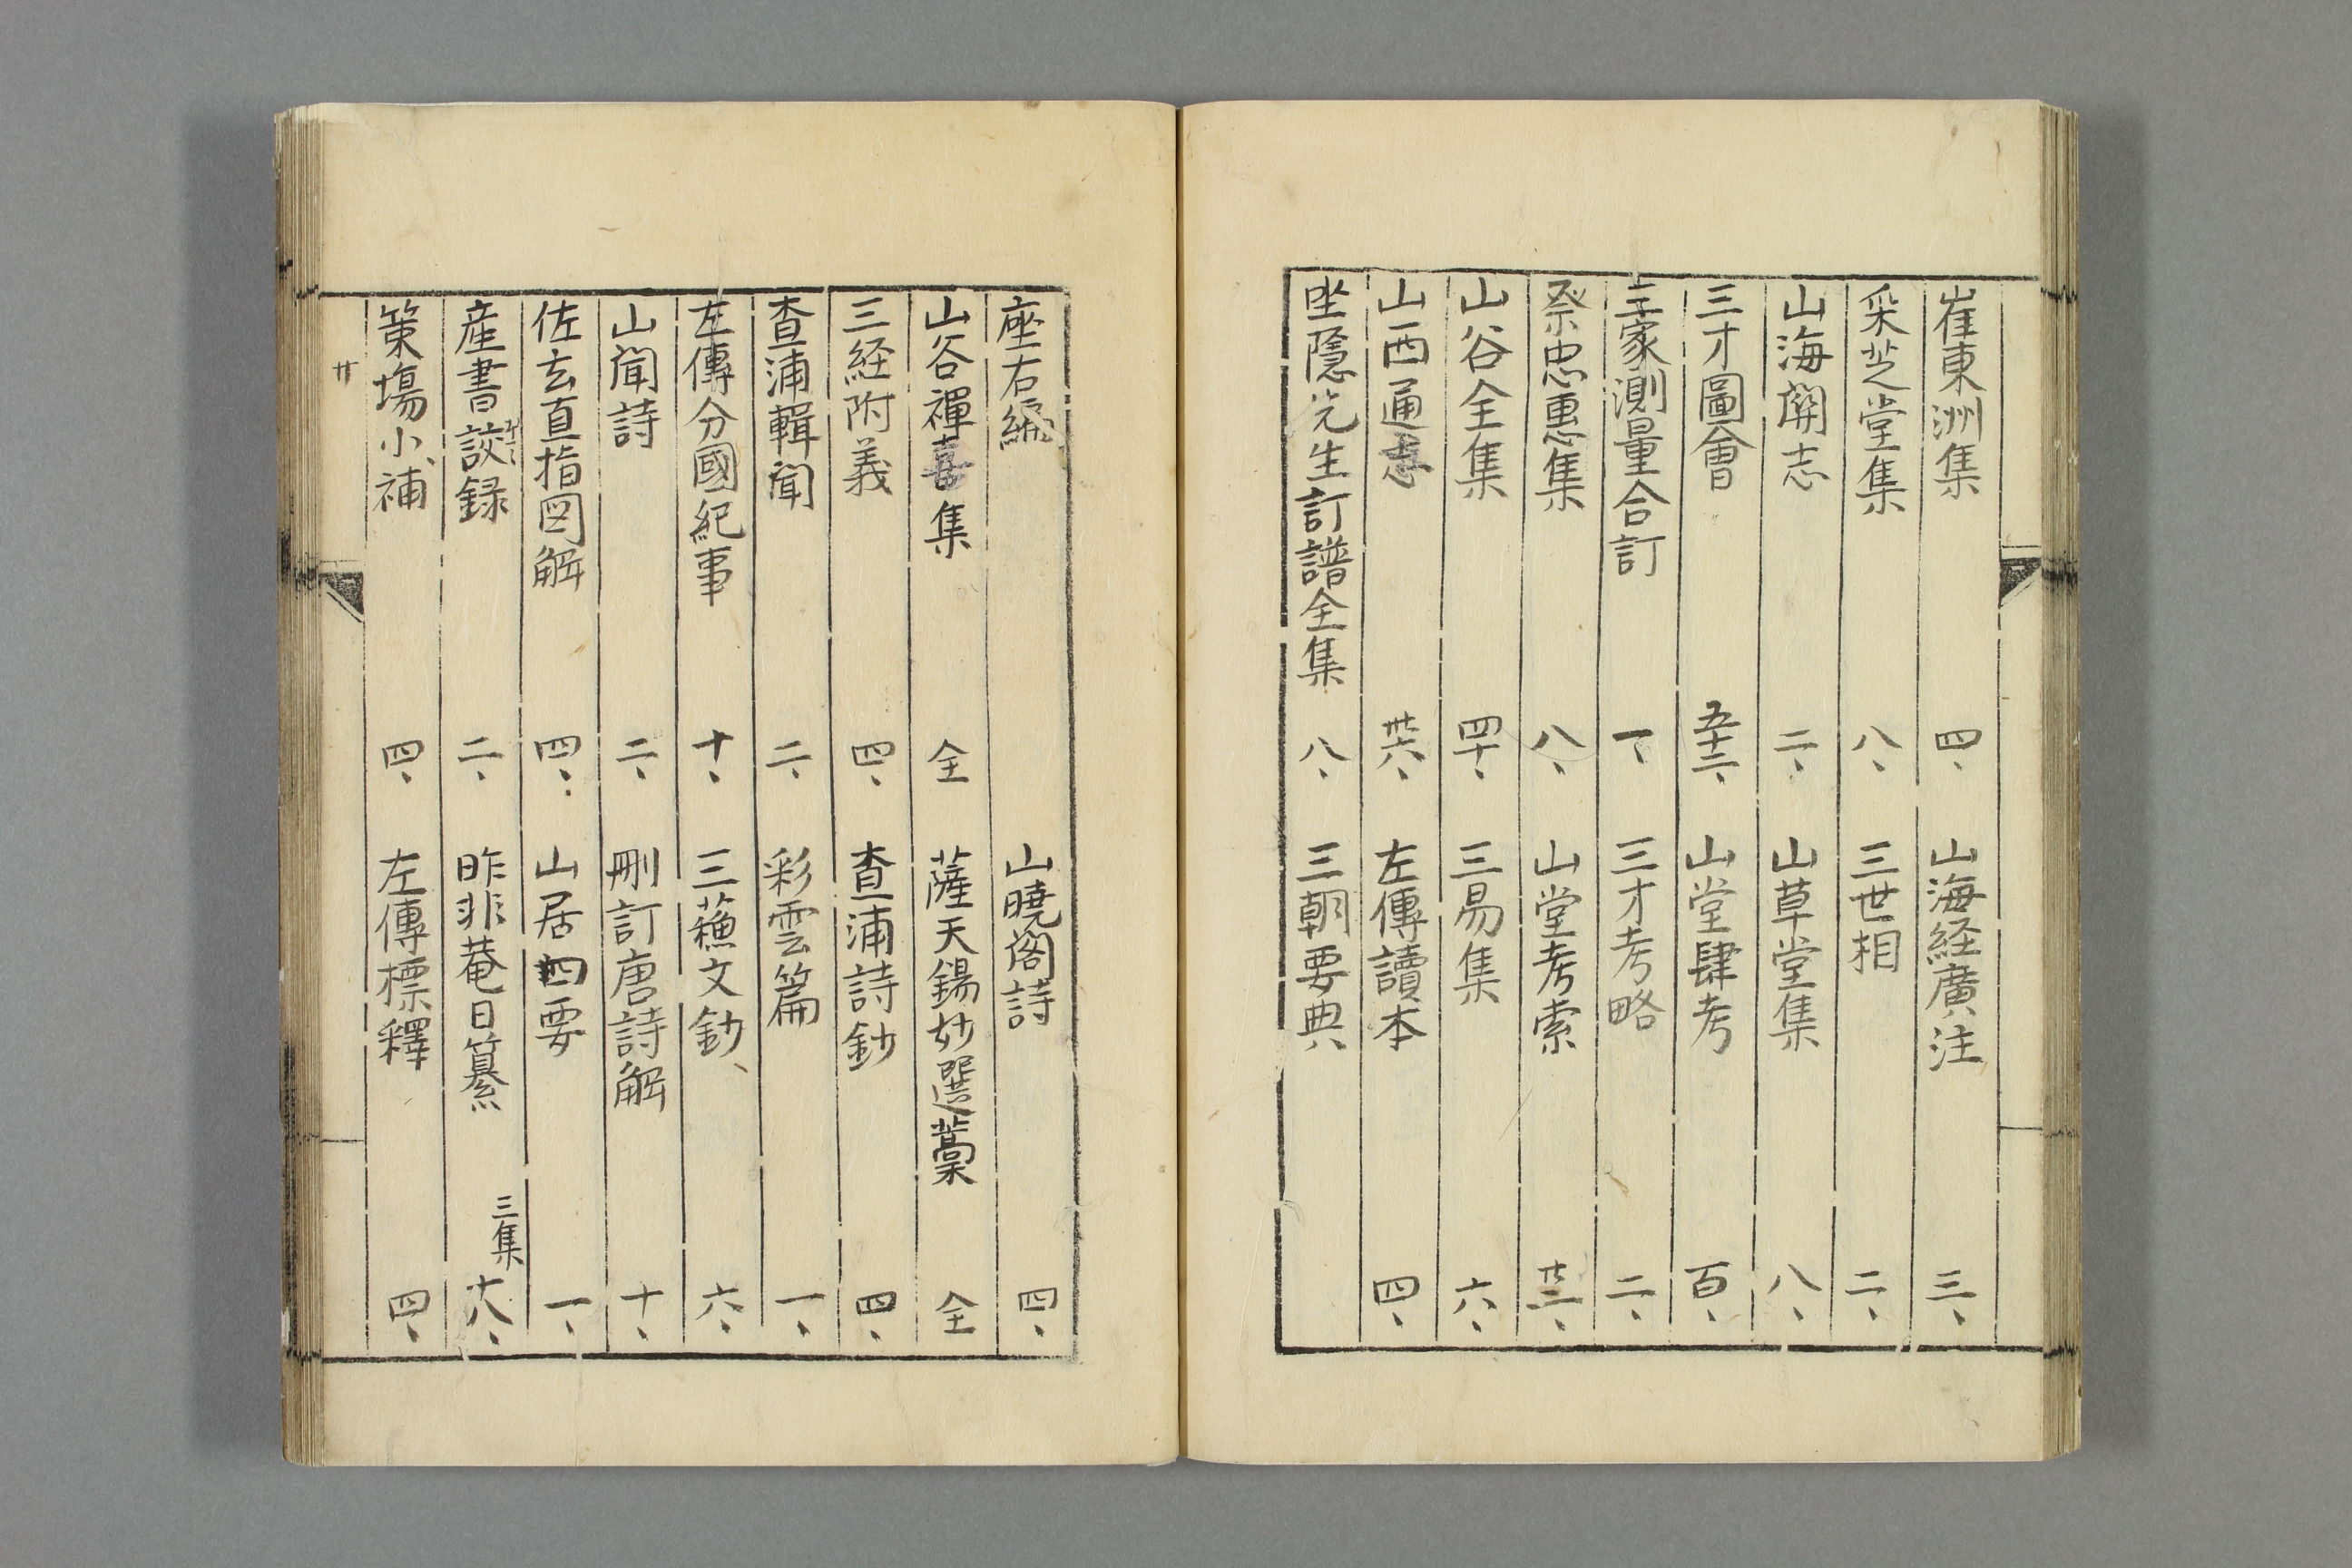 崔東洲集 四、 山海経廣注 三、
采芝堂集 八、 三世相 二、
山海關志 二、 山草堂集 八、
三才圖會 五十二、 山堂肆考 百、
三家測量合訂 一、 三才考略 二、
祭忠惠集 八、 山堂考索
山谷全集 四十、 三易集 六、
山西通志 卅六、 左傳讀本 四、
坐隱先生訂譜全集 八、 三朝要典
座右編 山曉閣詩 四、
山谷禪喜集 全 薩天錫妙選藁 全
三経附義 四、 査浦詩鈔 四、
査浦輯聞 二、 彩雲篇 一、
左傳分國紀事 十、 三蘓文鈔、 六、
山聞詩 二、 刪訂唐詩解 十、
佐玄直指図解 四、 山居四要 一、
産書 録 二、 昨非菴日纂 三集 十八、
策塲小補 四、 左傳標釋 四、
廿